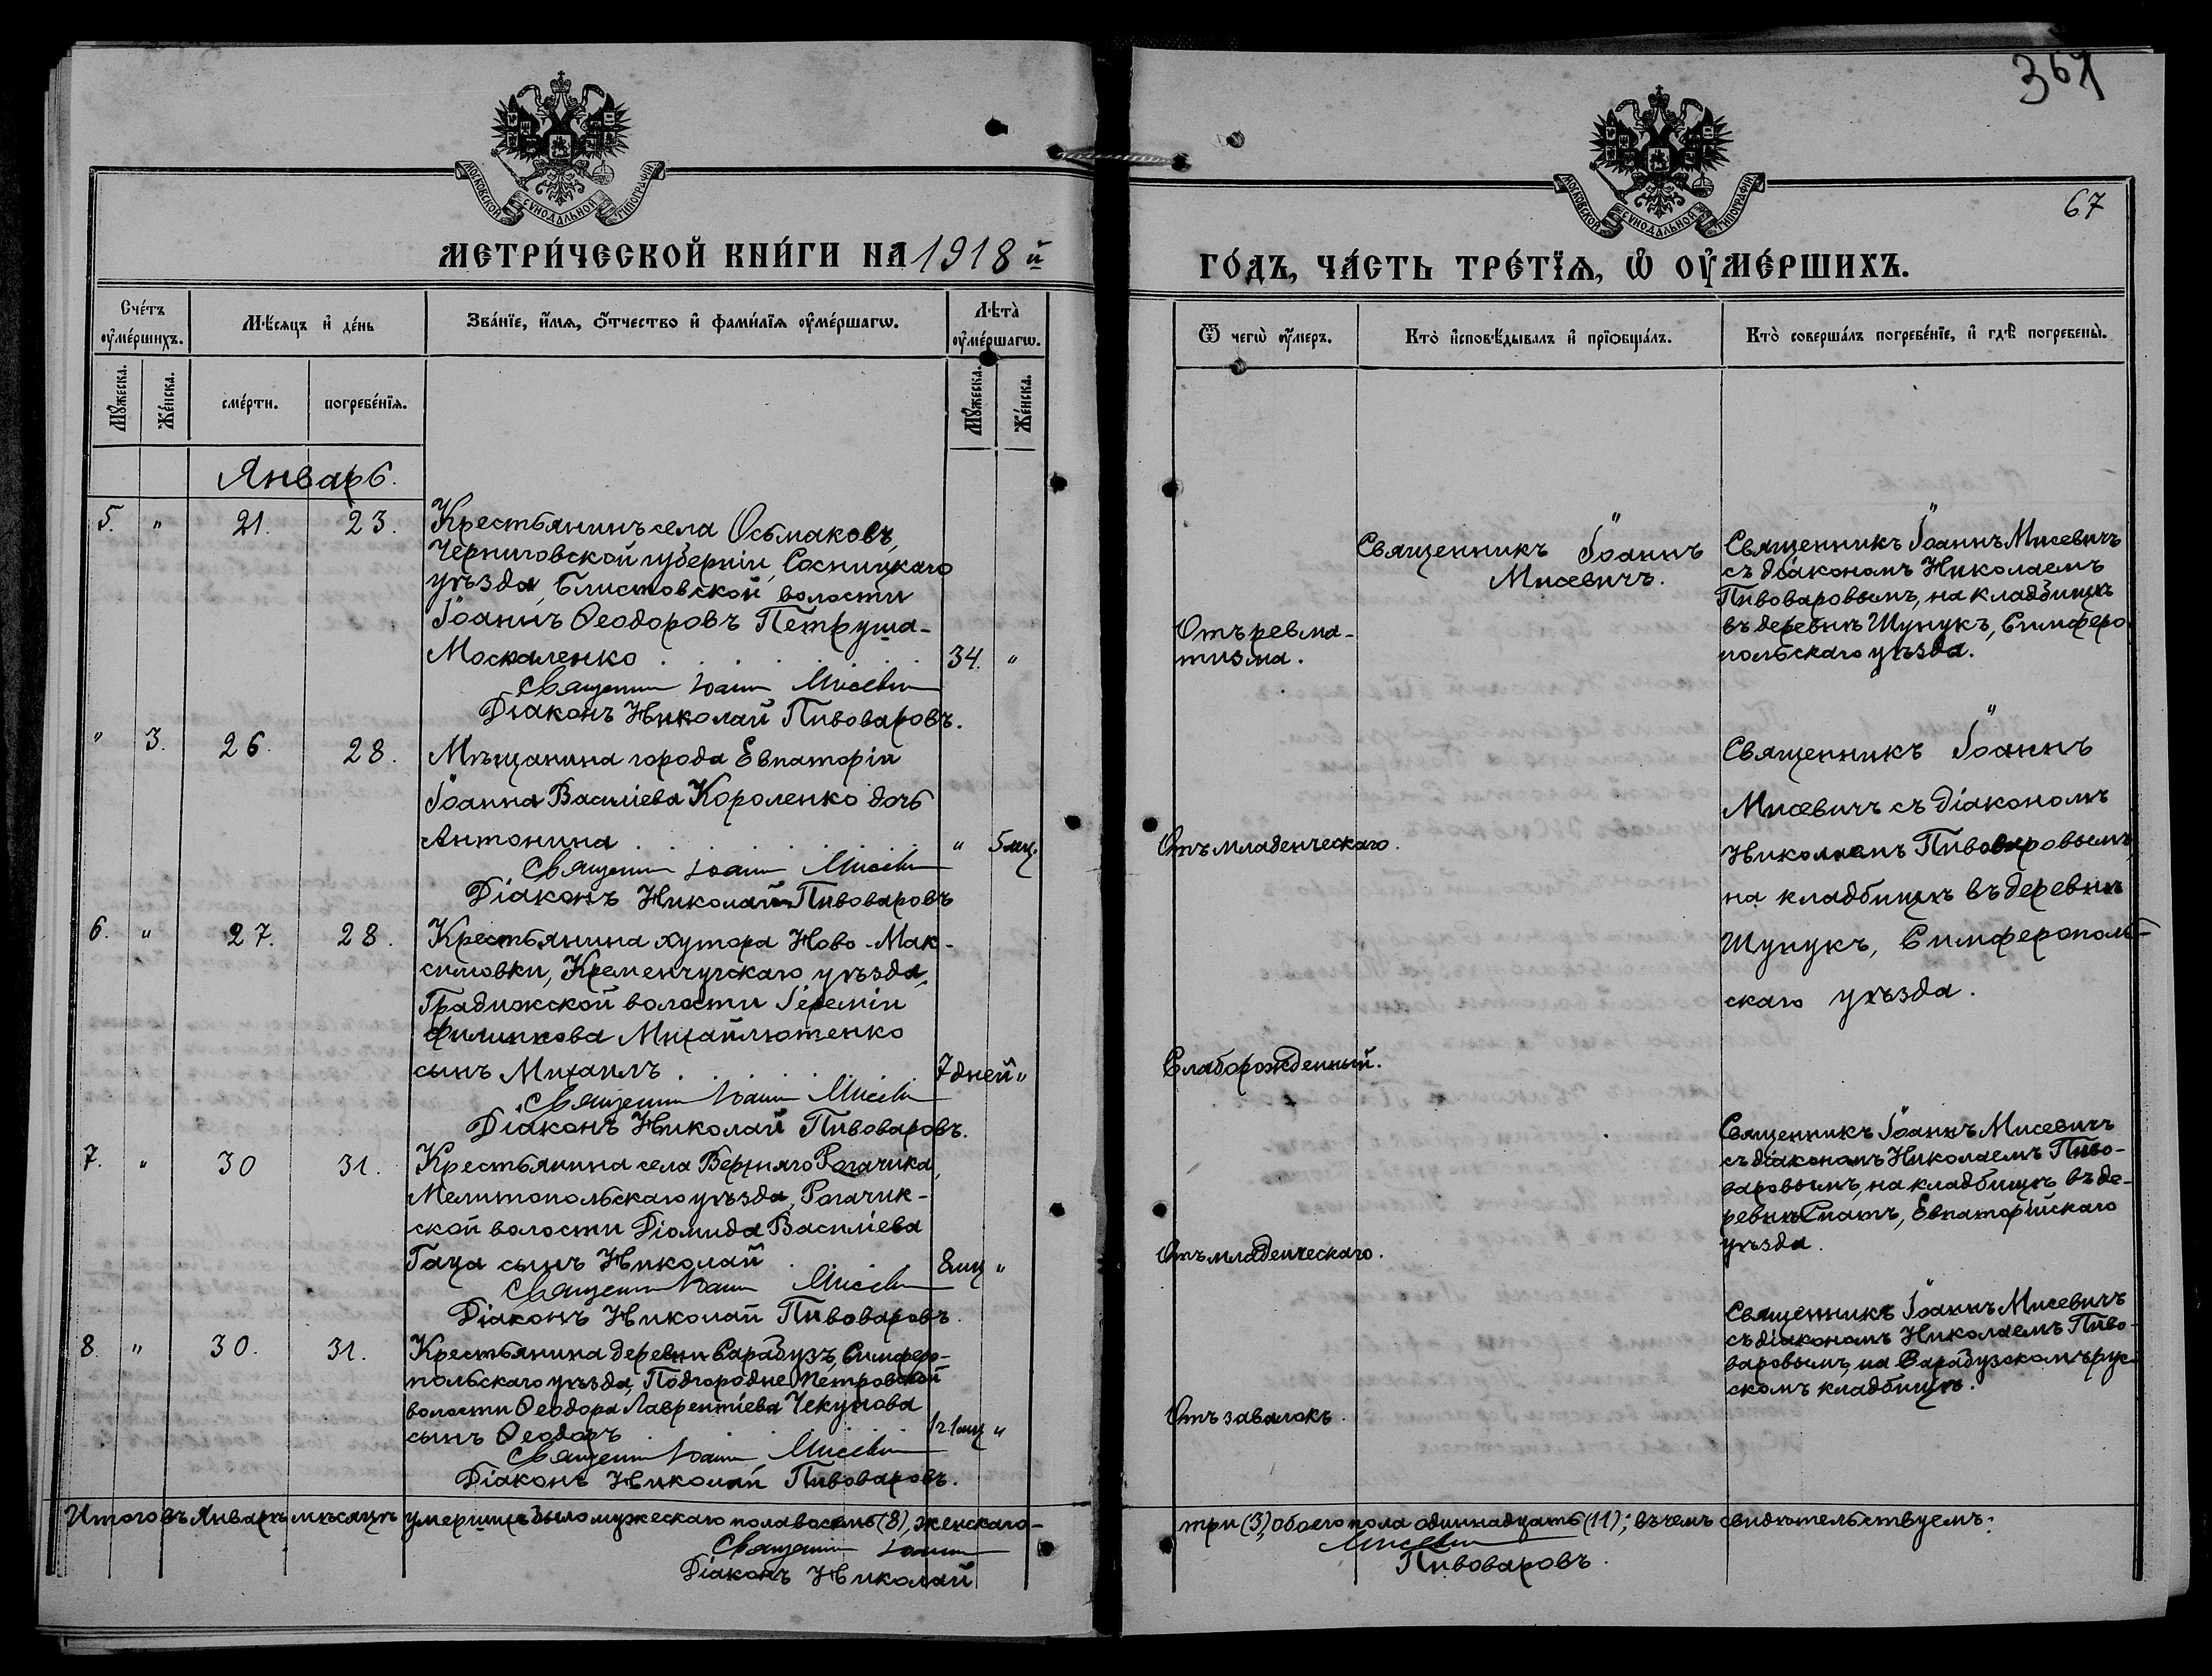 367
67
МОСКОВСКОЙ СѴНОДАЛЬНОЙ ТИПОГРАФІИ
МОСКОВСКОЙ СѴНОДАЛЬНОЙ ТИПОГРАФІИ
МЕТРИ́ЧЕСКОЙ КНИ́ГИ НА 1918 й
ГО́ДЪ, ЧА́СТЬ ТРЕ́ТЇѦ, Ѡ҆ ОУ҆МЕ́РШИХЪ.
Сче́тъ оу҆ме́ршихъ.
Мѣ́сяцъ и҆ де́нь
Зва́нїе, и҆́мѧ, ѻ҆́тчество и҆ фами́лїѧ оу҆ме́ршагѡ.
Лѣта̀ оу҆ме́ршагѡ.
Ѿ чегѡ̀ оу҆́меръ.
Кто̀ и҆сповѣ́дывалъ и҆ прїѡбща́лъ.
Кто̀ соверша́лъ погребе́нїе, и҆ гдѣ̀ погребены̀.
Мꙋ́жеска.
Же́нска.
сме́рти.
погребе́нїѧ.
Мꙋ́жеска.
Же́нска.
Январь.
5. " 21. 23.
Крестьянинъ села Осьмаковъ,
Черниговской губерніи, Сосницкаго
уѣзда, Блистовской волости
Іоаннъ Ѳеодоровъ Петруша-
Москаленко . . . . . . 34. "
Священник Іоанн Мисевич
Діаконъ Николай Пивоваровъ.
Отъ ревма-
тизма.
Священникъ Іоаннъ
Мисевичъ.
Священникъ Іоаннъ Мисевичъ
съ діакономъ Николаемъ
Пивоваровымъ, на кладбищѣ
въ деревнѣ Шунукъ, Симферо-
польскаго уѣзда.
" 3. 26. 28.
Мѣщанина города Евпаторіи
Іоанна Васильева Короленко дочь
Антонина . . . . . . " 5 мѣц.
Священник Іоанн Мисевич
Діаконъ Николай Пивоваровъ
Отъ младенческаго.
Священникъ Іоаннъ
Мисевичъ съ діакономъ
Николаемъ Пивоваровымъ,
на кладбищѣ въ деревнѣ
Шунукъ, Симферополь-
скаго уѣзда.
6. " 27. 28.
Крестьянина хутора Ново-Мак-
симовки, Кременчугскаго уѣзда,
Градижской волости Іереміи
Филиппова Михайлютенко
сынъ Михаилъ . . . . 7 дней "
Священник Іоанн Мисевич
Діаконъ Николай Пивоваровъ.
Слаборожденный.
7. " 30 31.
Крестьянина села Верхняго Рогачика,
Мелитопольскаго уѣзда, Рогачик-
ской волости Діомида Василіева
Гаца сынъ Николай . 8 мц "
Священник Іоанн Мисевич
Діаконъ Николай Пивоваровъ.
Отъ младенческаго.
Священникъ Іоаннъ Мисевичъ
съ діакономъ Николаемъ Пиво-
варовымъ, на кладбищѣ въ де-
ревнѣ Спатъ, Евпаторійскаго
уѣзда.
8. " 30. 31.
Крестьянина деревни Сарабузъ, Симферо-
польскаго уѣзда, Подгородне Петровской
волости Ѳеодора Лаврентіева Чекунова
сынъ Ѳеодоръ 1 г. 1 мц "
Священник Іоанн Мисевич
Діаконъ Николай Пивоваровъ.
Отъ завалокъ.
Священникъ Іоаннъ Мисевичъ
съ діакономъ Николаемъ Пиво-
варовымъ, на Сарабузскомъ рус-
скомъ кладбищѣ.
Итого въ Январѣ мѣсяцѣ умершихъ было мужескаго пола восемь (8), женскаго -
три (3), обоего пола одиннадцать (11); въ чемъ свидѣтельствуемъ:
Священник Іоанн Мисевич
Діаконъ Николай Пивоваровъ.